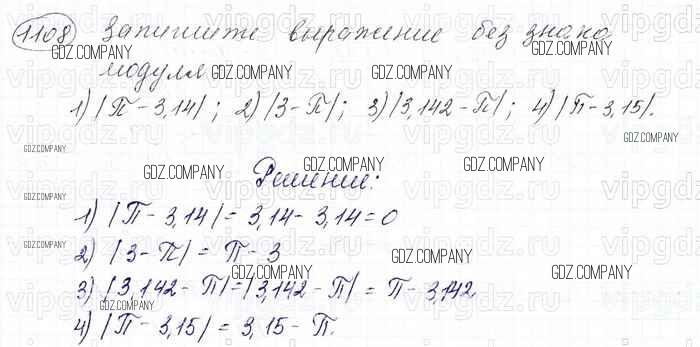 1108 Запишите выражение без знака
модуля
1) |π - 3,14|; 2) |3 - π|; 3) |3,142 - π|; 4) |π - 3,15|.
Решение:
1) |π - 3,14| = 3,14 - 3,14 = 0
2) |3 - π| = π - 3
3) |3,142 - π| = |3,142 - π| = π - 3,142
4) |π - 3,15| = 3,15 - π.
GDZ.COMPANY
vipgdz.ru